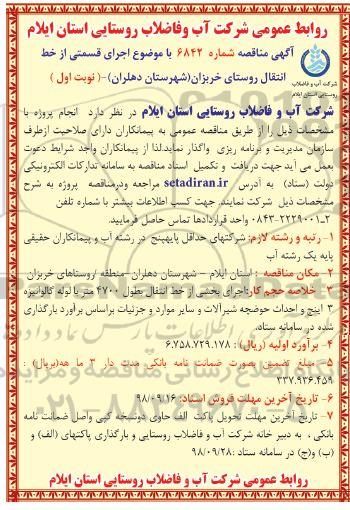 روابط عمومی شرکت آب وفاضلاب روستایی استان ایلام
آگهی مناقصه شماره ۶۸۴۲ با موضوع اجرای قسمتی از خط
انتقال روستای خربزان(شهرستان دهلران)-( نوبت اول )
شرکت آب و فاضلاب
روستایی استان ایلام
شرکت آب و فاضلاب روستایی استان ایلام در نظر دارد انجام پروژه با
مشخصات ذیل را از طریق مناقصه عمومی به پیمانکاران دارای صلاحیت ازطرف
سازمان مدیریت و برنامه ریزی واگذار نماید.لذا از پیمانکاران واجد شرایط دعوت
بعمل می آید جهت دریافت و تکمیل اسناد مناقصه به سامانه تدارکات الکترونیکی
دولت (ستاد) به آدرس setadiran.ir مراجعه ودرمناقصه پروژه به شرح
مشخصات ذیل شرکت نمایند. جهت کسب اطلاعات بیشتر با شماره تلفن
۲_۰۸۴۳-۲۲۲۹۰۰۱ واحد قراردادها تماس حاصل فرمایید.
۱ - رتبه و رشته لازم: شرکتهای حداقل پایهپنج در رشته آب و پیمانکاران حقیقی
پایه یک رشته آب
۲- مکان مناقصه : استان ایلام - شهرستان دهلران -منطقه /روستاهای خربزان
۳- خلاصه حجم کار:اجرای بخشی از خط انتقال بطول ۴۷۰۰ متر با لوله گالوانیزه
۳ اینچ و احداث حوضچه شیرآلات و سایر موارد و جزئیات براساس برآورد بارگذاری
شده در سامانه ستاد.
۴- برآورد اولیه (ریال) : ۶.۷۵۸.۷۲۹.۱۷۸
۵- مبلغ تضمین بصورت ضمانت نامه بانکی مدت دار ۳ ما هه(بریال) :
۳۳۷.۹۳۶.۴۵۹
۶- تاریخ آخرین مهلت فروش اسناد: ۹۸/۰۹/۱۶
۷- تاریخ آخرین مهلت تحویل پاکت الف حاوی دونسخه کپی واصل ضمانت نامه
بانکی ، به دبیر خانه شرکت آب و فاضلاب روستایی و بارگذاری پاکتهای (الف) و
(ب) و(ج) در سامانه ستاد :۹۸/۰۹/۲۸
روابط عمومی شرکت آب وفاضلاب روستایی استان ایلام